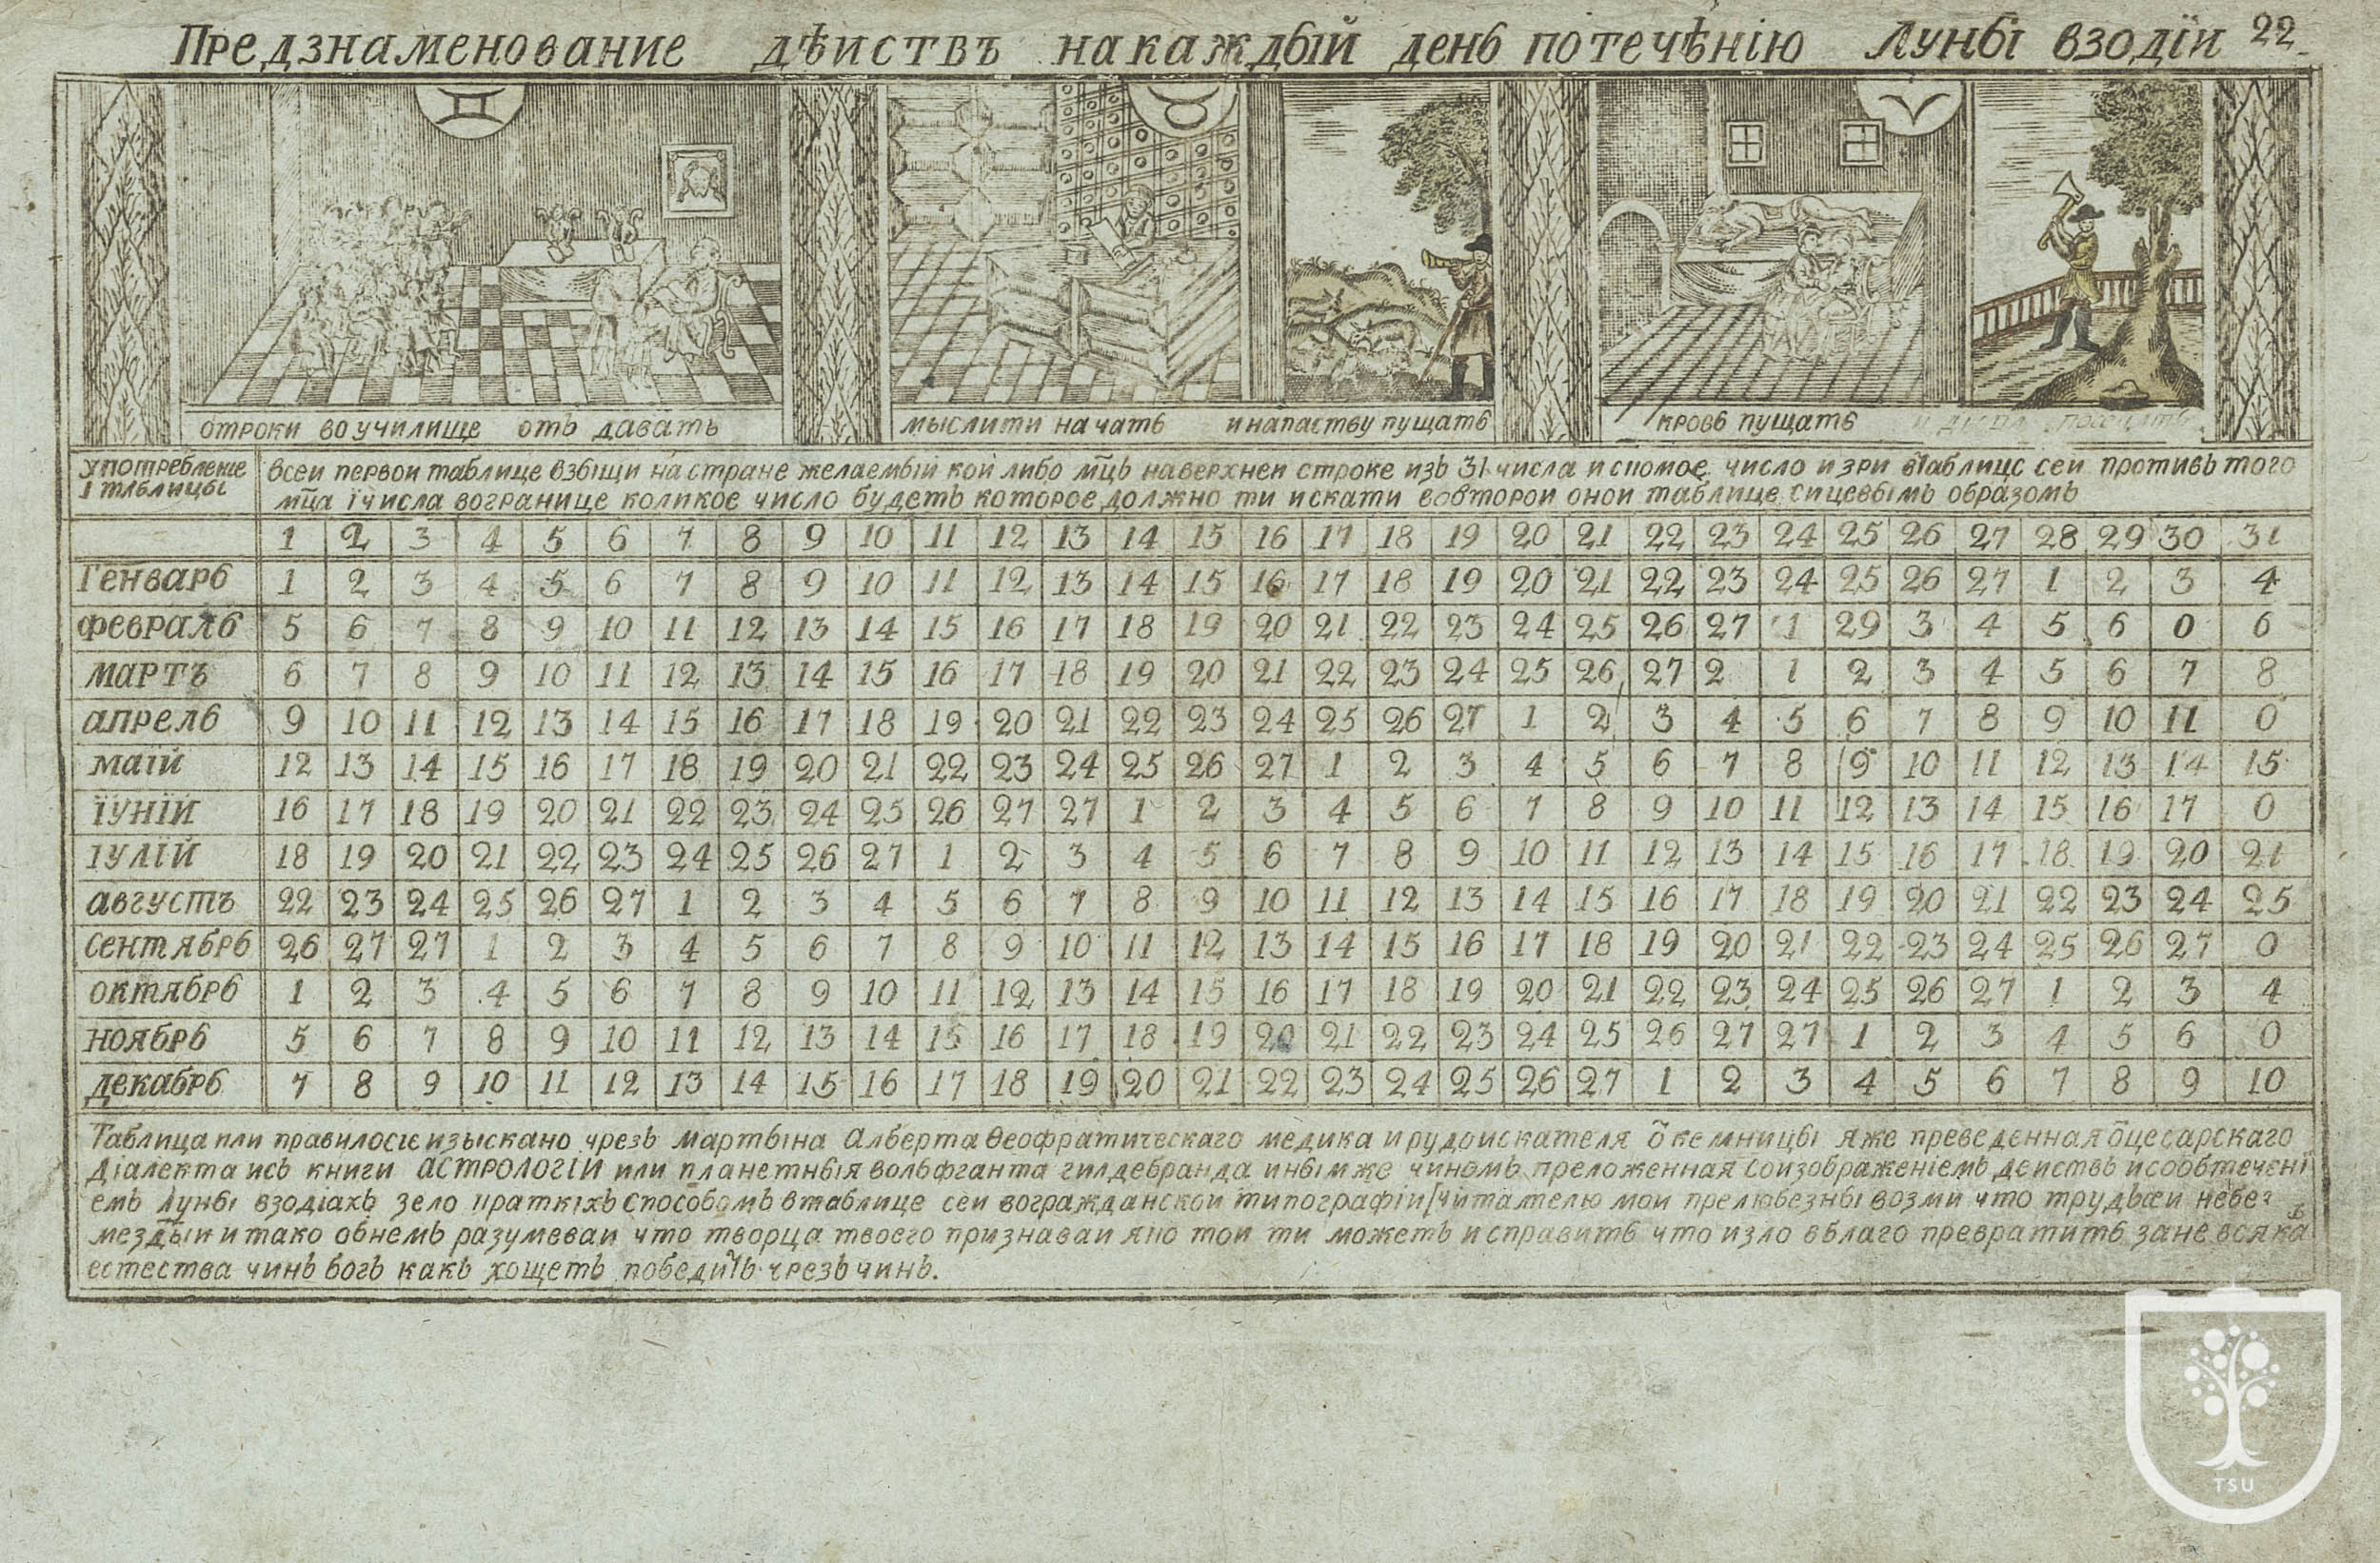 Предзнаменование дѣиствъ на каждыӥ день по течѣнїю Луны взодїи 22
отроки во училище отъ давать
мыслити начать и напаству пущать
кровь пущать
употребленїе
1 таблицы
всеи первои таблице взыщи на стране желаемыӥ кои либо мц̃ъ на верхнеи строке изъ 31 числа и спомое число и зри втаблице сеи противъ того
мц̃а ї числа вогранице коликое число будетъ которое должно ти искати вовторои онои таблице сицевымъ образомъ
1 2 3 4 5 6 7 8 9 10 11 12 13 14 15 16 17 18 19 20 21 22 23 24 25 26 27 28 29 30 31
Генварь 1 2 3 4 5 6 7 8 9 10 11 12 13 14 15 16 17 18 19 20 21 22 23 24 25 26 27 1 2 3 4
февраль 5 6 7 8 9 10 11 12 13 14 15 16 17 18 19 20 21 22 23 24 25 26 27 1 29 3 4 5 6 0 6
мартъ 6 7 8 9 10 11 12 13 14 15 16 17 18 19 20 21 22 23 24 25 26 27 2 1 2 3 4 5 6 7 8
апрель 9 10 11 12 13 14 15 16 17 18 19 20 21 22 23 24 25 26 27 1 2 3 4 5 6 7 8 9 10 11 0
маїй 12 13 14 15 16 17 18 19 20 21 22 23 24 25 26 27 1 2 3 4 5 6 7 8 9 10 11 12 13 14 15
їунїй 16 17 18 19 20 21 22 23 24 25 26 27 27 1 2 3 4 5 6 7 8 9 10 11 12 13 14 15 16 17 0
їулїй 18 19 20 21 22 23 24 25 26 27 1 2 3 4 5 6 7 8 9 10 11 12 13 14 15 16 17 18 19 20 21
августъ 22 23 24 25 26 27 1 2 3 4 5 6 7 8 9 10 11 12 13 14 15 16 17 18 19 20 21 22 23 24 25
сентябрь 26 27 27 1 2 3 4 5 6 7 8 9 10 11 12 13 14 15 16 17 18 19 20 21 22 23 24 25 26 27 0
октябрь 1 2 3 4 5 6 7 8 9 10 11 12 13 14 15 16 17 18 19 20 21 22 23 24 25 26 27 1 2 3 4
ноябрь 5 6 7 8 9 10 11 12 13 14 15 16 17 18 19 20 21 22 23 24 25 26 27 27 1 2 3 4 5 6 0
декабрь 7 8 9 10 11 12 13 14 15 16 17 18 19 20 21 22 23 24 25 26 27 1 2 3 4 5 6 7 8 9 10
Таблица или правило сїе изыскано чрезъ мартына Алберта Ѳеофратическаго медика и рудоискателя õ кемницы яже преведенная õцесарскаго
дїалекта исъ книги АСТРОЛОГІИ или планетныя вольфганта гилдебранда инымже чиномъ преложенная соизображенїемъ деиствъ исообтеченї
емъ луны взодїахъ зело краткїхъ способомъ втаблице сеи вогражданскои типографїи [читателю мои прелюбезны возми что трудыѧи небез
мездыи и тако обнемъ разумеваи что творца твоего признаваи яко тои ти можетъ исправить что изло вблаго превратить зане всякаѣ
естества чинъ богъ какъ хощетъ победить чрезъ чинъ.
TSU